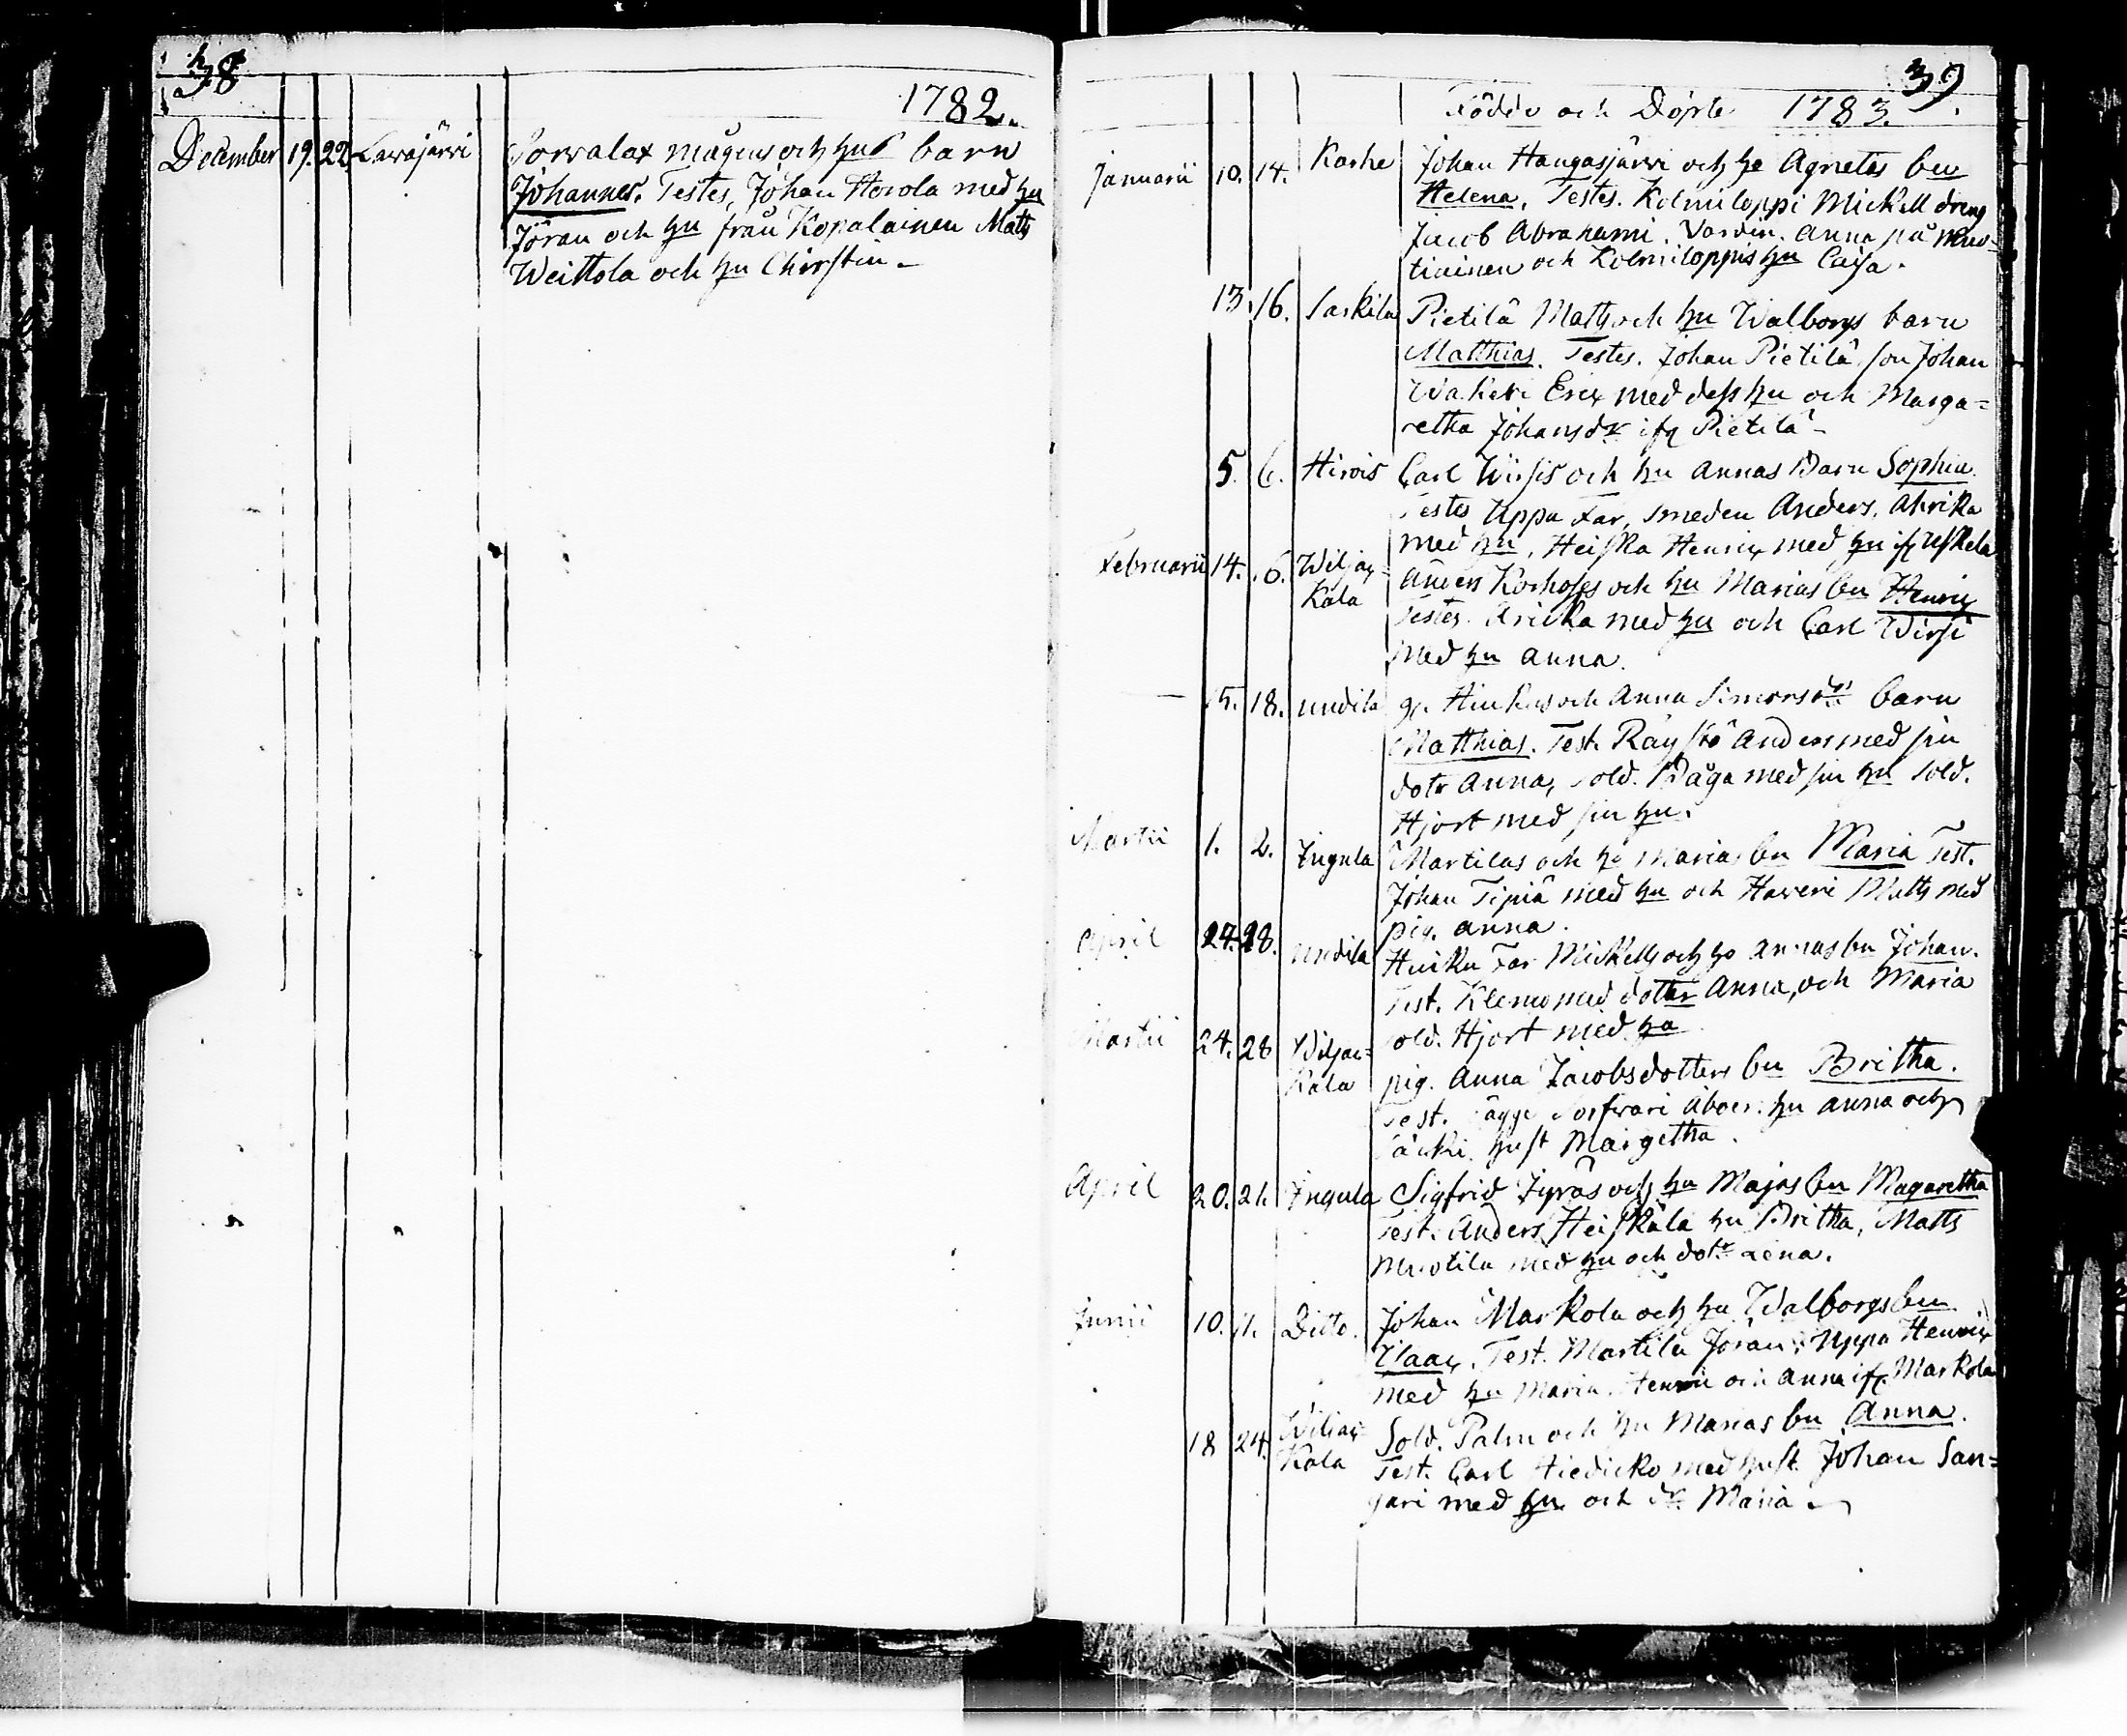 38
1782.
December 19. 22. Lavajärvi Torvalax mågens och hus barn
Johannes. Testes, Johan Horola med hu
Jöran och hu från Kopalainen Matts
Weittola och hu Chirstin.
39.
Födde och Döpte 1783.
Januarii 10. 14. Karhe Johan Haugasjärvi och ho Agnetes bn
Helena. Testes. Kolmiloppi Mickell dreng
Jacob Abrahami. Anna på Mus=
tiainen och Kolmiloppis hu Caisa.
13. 16. Sarkila Pietilä Matts och hu Walborgs barn
Matthias. Testes. Johan Pietilä son Johan
Wakeri Erix med dess hu och Marga=
retha Johansdr ifr Pietilä
5. 6. Hirvis Carl Wirsis och hu Annas Barn Sophia.
Testes Uppa Far, smeden Anders, Ahrika
med hu, Heiska Henrix med hu ifr Uskela
Februarii 14. 16. Wiljax=
kala
Anders Korhoss och hu Marias bn Henrix
Testes. Aricka med hu och Carl Wirsi
med hu Anna.
15. 18. undila gr. Hinkus och Anna Simonsdrs barn
Matthias. Test. Räystö Anders med sin
dotr Anna, sold. Båga med sin hu sold.
Hjort med sin hu.
Martii 1. 2. Ingula Martilas och ho Marias bn Maria Test.
Johan Tipiä med hu och Haveri Matts med
pig. Anna.
April 27. 28. undila Huiku Far Mickells och ho Annas bn Johan.
Test. Klemo med dotter Anna, och Maria
sold. Hjort med ho
Martii 24. 28 Wiljax=
kala
pig. Anna Jacobsdotters bn Britha.
Test. Jägge Aboer. hu Anna och
hust Margetha.
April 20. 21. Ingula Sigfrid Jyräs och hu Majas bn Magaretha
Test. Anders Heiskala hu Britha, Matts
Mustila med hu och dotr Lena.
Junii 10. 11. Ditto. Johan Markola och hu Walborgs bn
Isaax. Test. Martila Jöran, Uppa Henrix
med hu Maria. Henric och Anna ifr Markola
18 24. Wiljax
Kala
Sold. Palm och hu Marias bn Anna.
Test. Carl Hiedicko med hust. Johan San=
jari med hu och dr Maria.